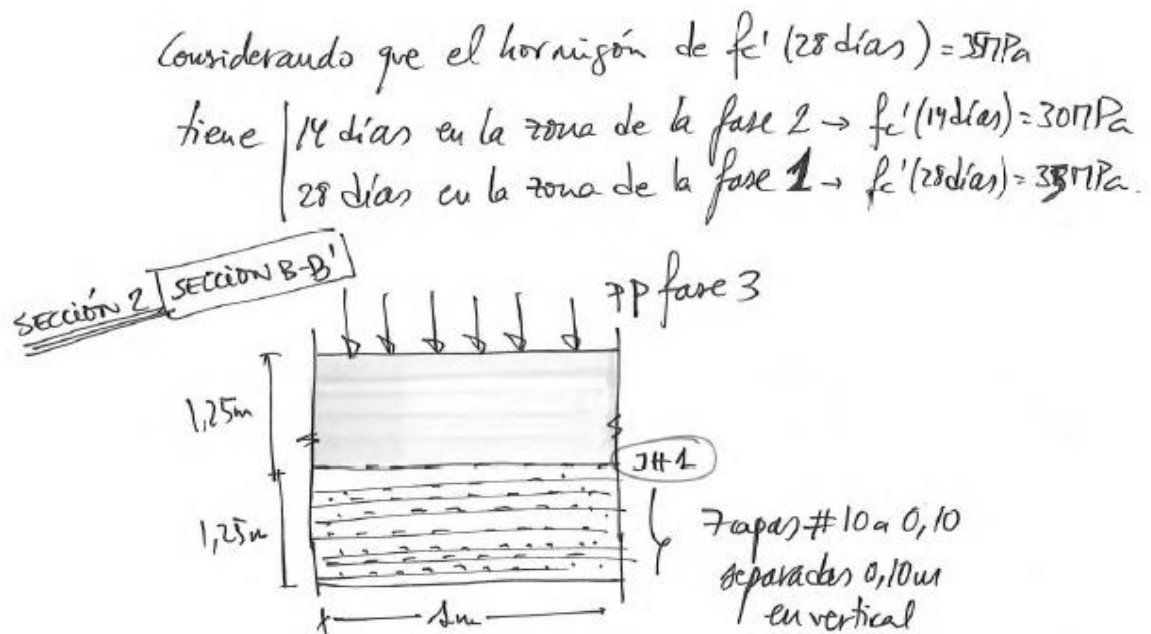 Considerando que el hormigón de fc' (28 días) = 35MPa
tiene 14 días en la zona de la fase 2 → fc' (14 días) = 30MPa
28 días en la zona de la fase 1 → fc' (28 días) = 35MPa.
SECCIÓN 2 SECCIÓN B-B'
PP fase 3
1,25m
JH-1
1,25m
7 capas #10 a 0,10
separadas 0,10m
en vertical
1m